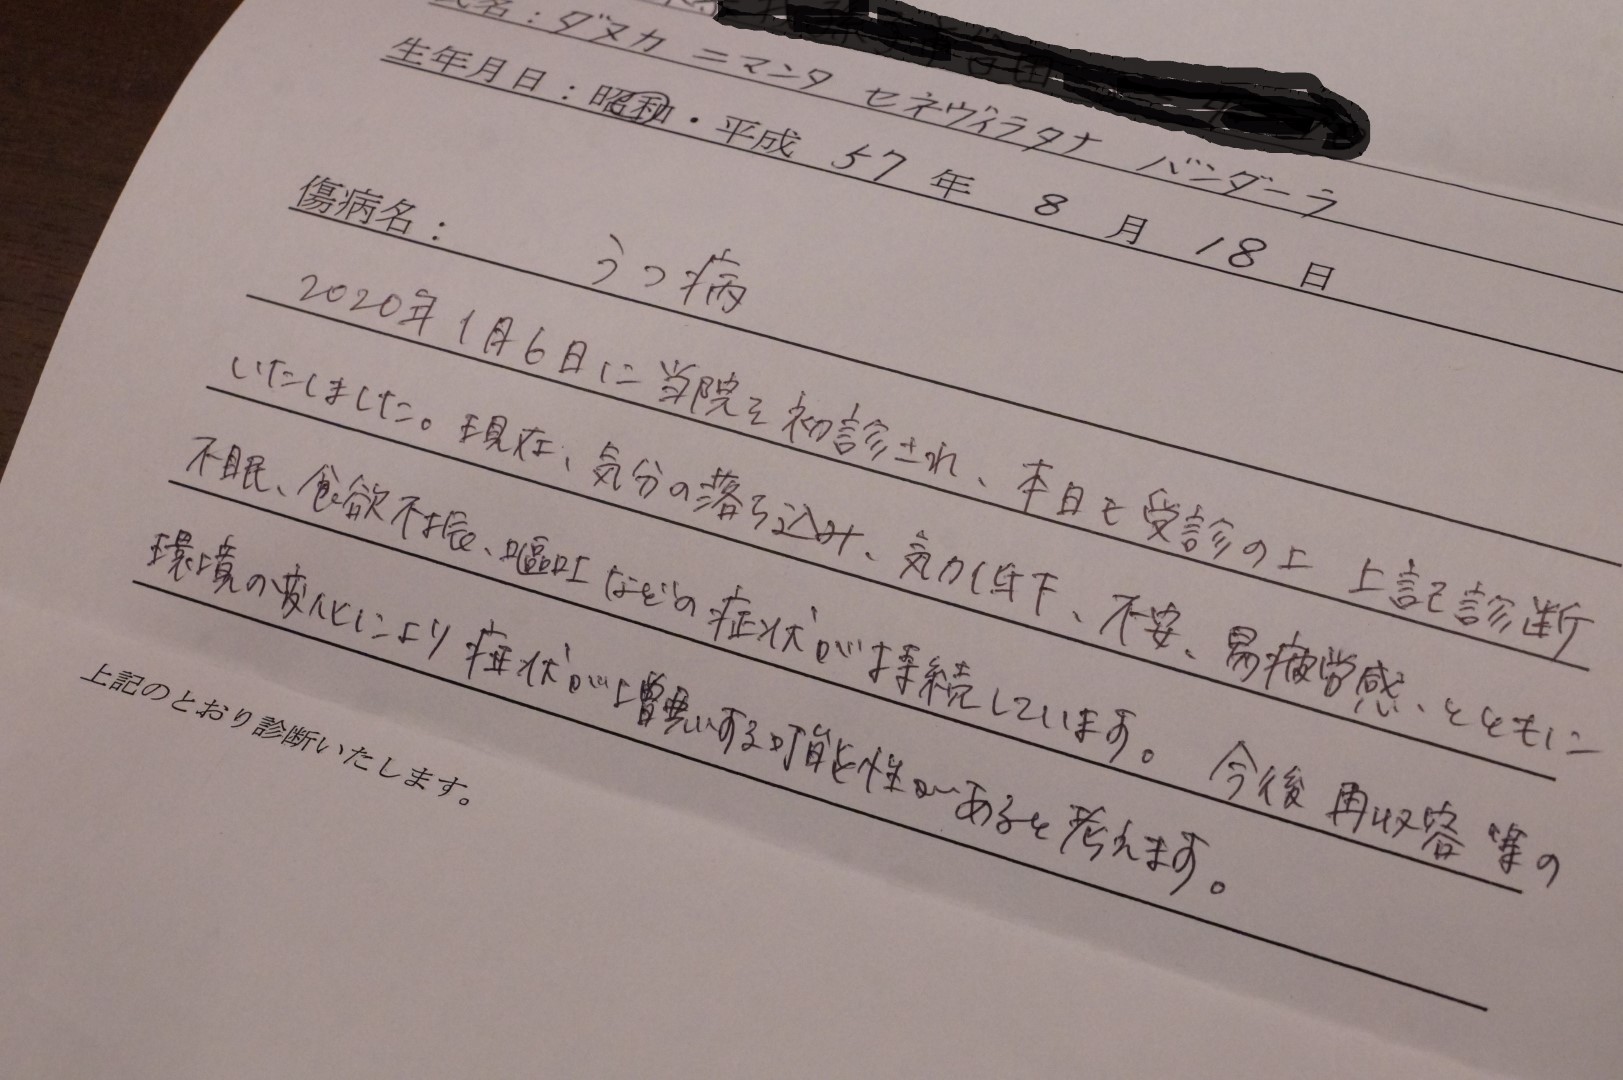 氏名：ダヌカ ニマンタ セネヴィラタナ バンダーラ
生年月日：昭和・平成 57年 8月 18日
傷病名： うつ病
2020年1月6日に当院を初診され、本日も受診の上 上記診断
いたしました。現在、気分の落ち込み、気力低下、不安、易疲労感、とともに
不眠、食欲不振、嘔吐などの症状が持続しています。今後 再収容等の
環境の変化により症状が増悪する可能性があると考えます。
上記のとおり診断いたします。